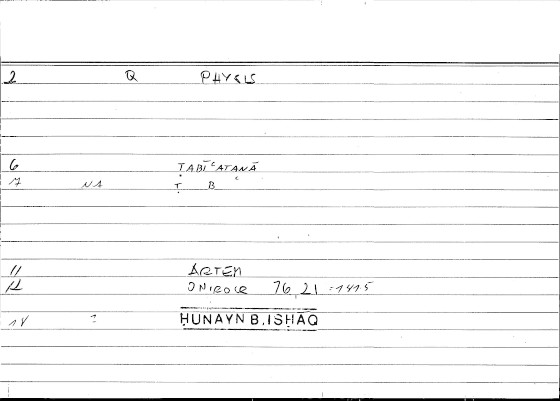 2 Q PHYSIS
6 ṬABĪʿATANĀ
7 NA Ṭ B ʿ
11 ARTEM
12 ONIROCR 76,21 = 1415
14 : ḤUNAYN B. ISḤĀQ